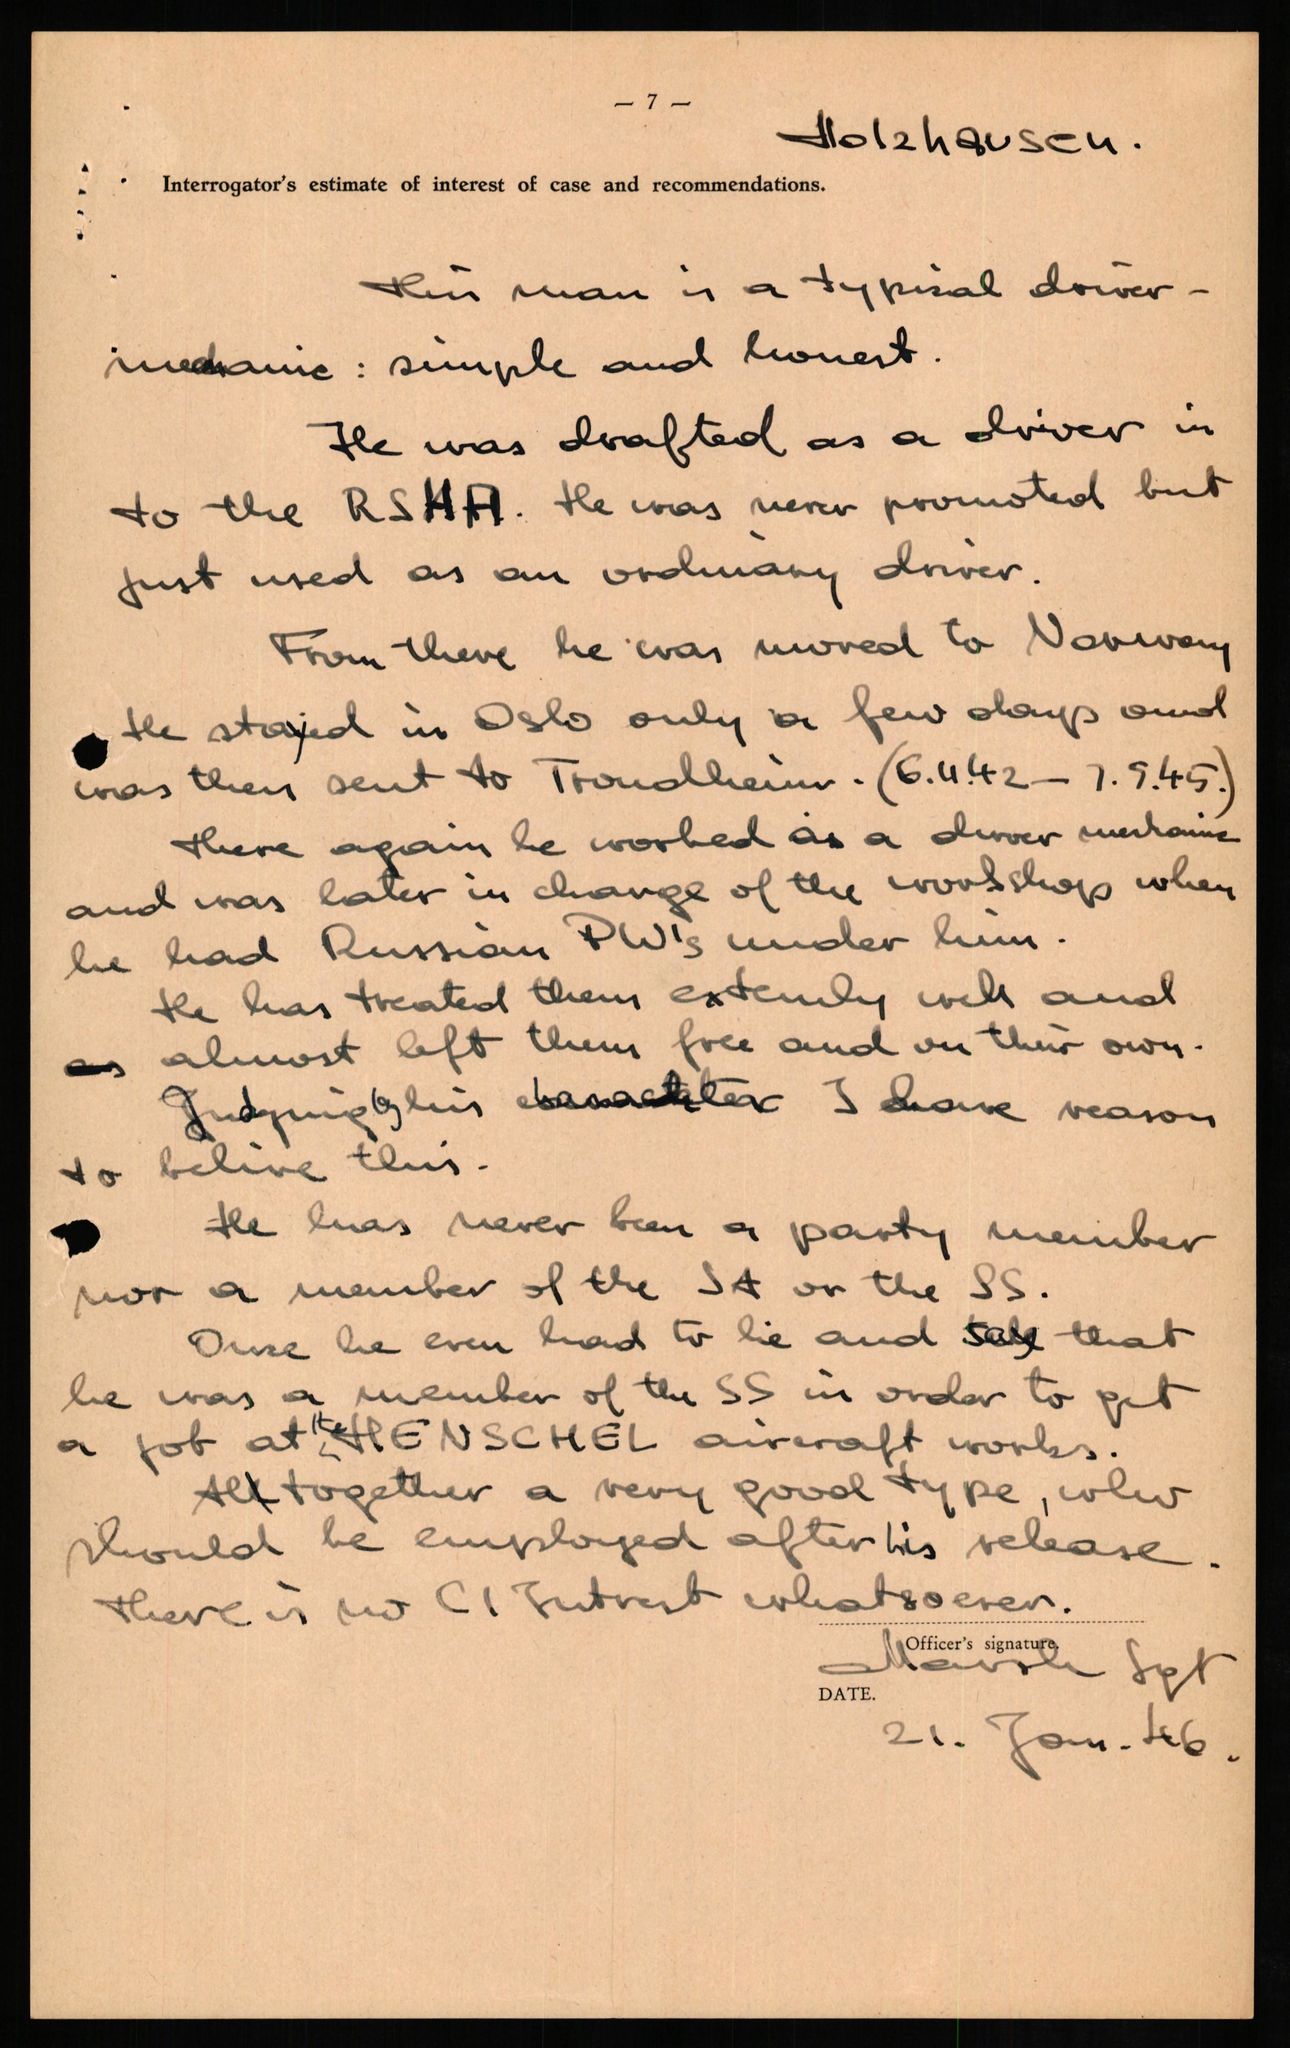 — 7 —
Holzhausen.
Interrogator's estimate of interest of case and recommendations.
This man is a typical driver-
mechanic: simple and honest.
He was drafted as a driver in
to the RSHA. He was never promoted but
just used as an ordinary driver.
From there he was moved to Norway
He stayed in Oslo only a few days and
was then sent to Trondheim. (6.11.42 — 7.5.45.)
There again he worked as a driver mechanic
and was later in charge of the workshop when
he had Russian PW's under him.
He has treated them extemly well and
almost left them free and on their own.
Judging by his character I have reason
to belive this.
He has never been a party member
nor a member of the SA or the SS.
Once he even had to lie and say that
he was a member of the SS in order to get
a job at the HENSCHEL aircraft works.
Alltogether a very good type, who
should be employed after his release.
There is no CI Intrest whatsoever.
Officer's signature.
Marsh Sgt
DATE.
21. Jan. 46.